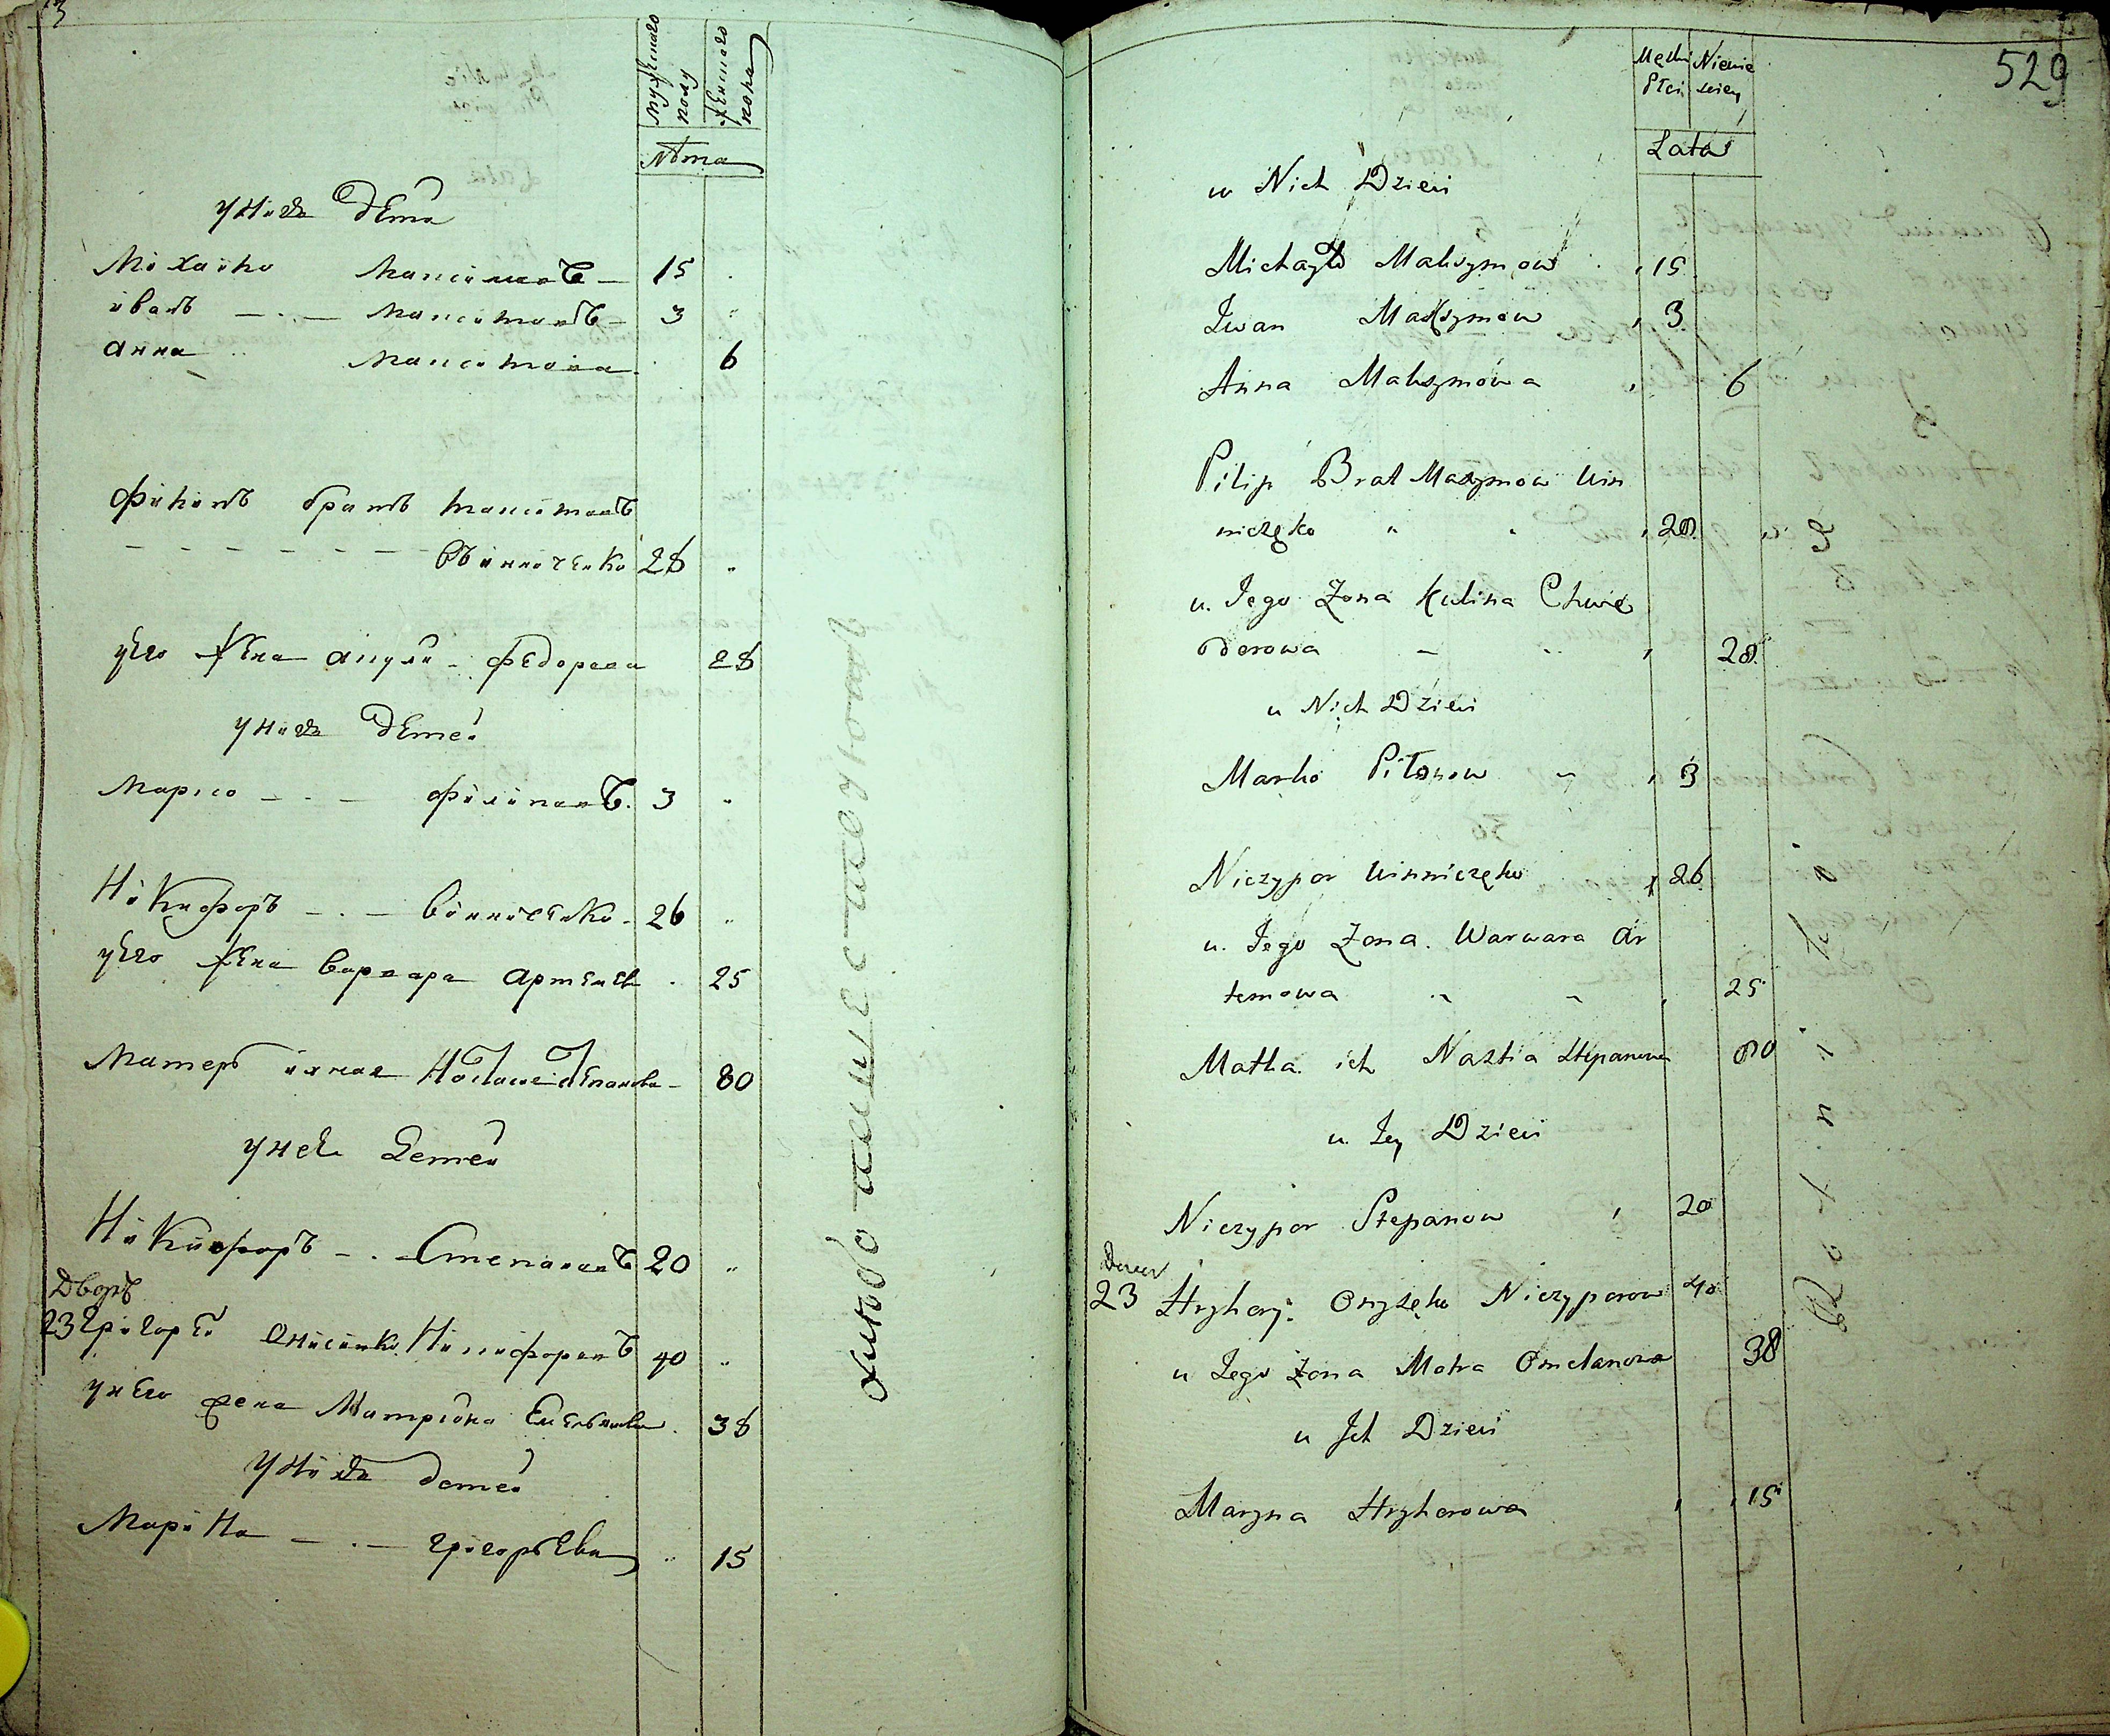 3
мужескаго полу
женскаго пола
Лѣта
у них дети
Михайло Максимовъ 15
иванъ Максимовъ 3
анна Максимова 6
Филипъ братъ Максимовъ
Винниченко 28
у его жена акулина федорова 28
у них детей
Марко филиповъ 3
Никифоръ Винниченко 26
у его жена Варвара артемова 25
Матерь ихная Настасия Степанова 80
у неё детей
Никифоръ Степановъ 20
Дворъ
23 григорей Онисенко Никифоровъ 40
у него жена Матриона Емельянова 38
у них детей
Марина григорьева 15
529
Męzki Płci
Niewieściey
Lata
u Nich Dzieci
Michayło Maksymow 15
Iwan Maksymow 3
Anna Maksymowa 6
Pilip Brat Maxymow Win
niczęko 28
u Jego Zona Kulina Chwe
derowa 28
u Nich Dzieci
Marko Pilipow 3
Niczypor Winniczęko 26
u Jego Zona Warwara Ar
temowa 25
Matka ich Nastia Stepanowa 80
u Jey Dzieci
Niczypor Stepanow 20
Dwor
23 Hryhory Onyszęko Niczyporow 40
u Jego Zona Motra Omelanowa 38
u Ich Dzieci
Maryna Hryhorowa 15